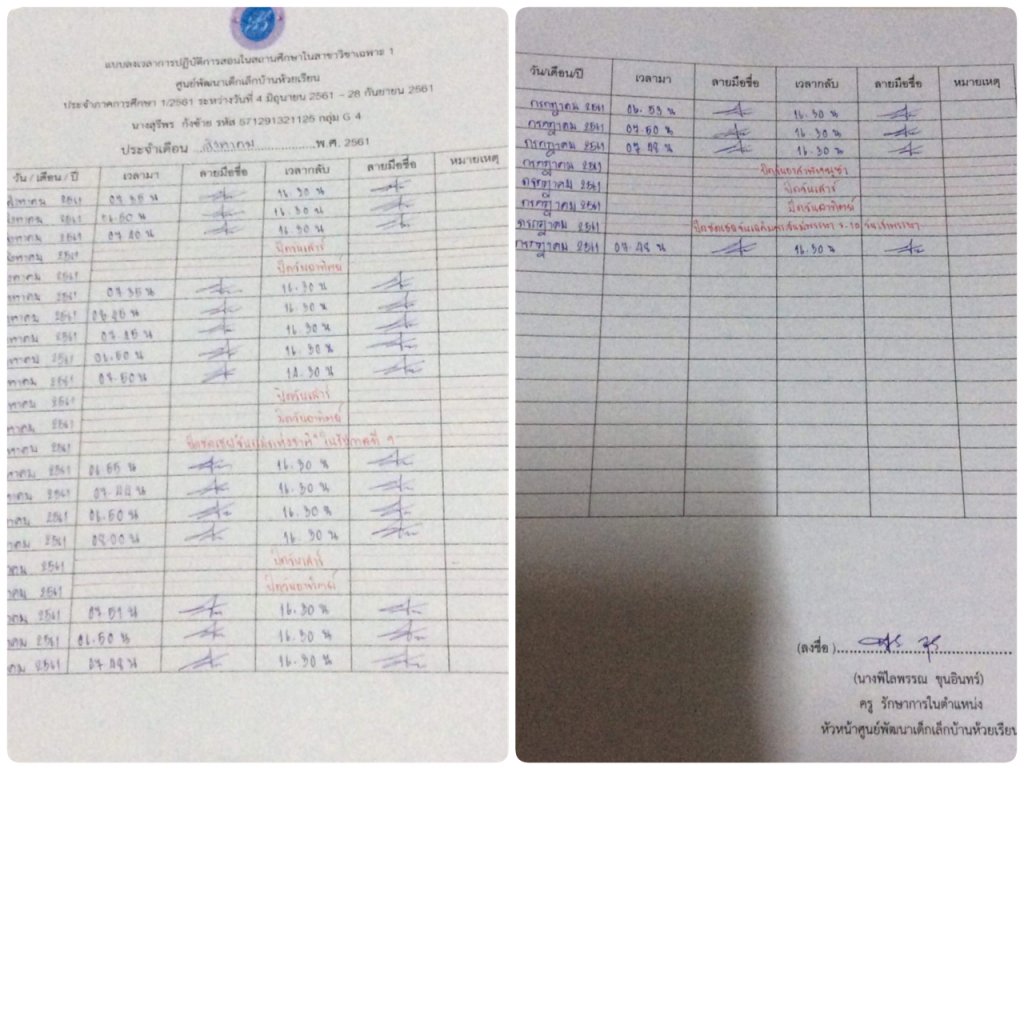 แบบลงเวลาการปฏิบัติการสอนในสถานศึกษาในสาขาวิชาเฉพาะ 1
ศูนย์พัฒนาเด็กเล็กบ้านห้วยเรียน
ประจำภาคการศึกษา 1/2561 ระหว่างวันที่ 4 มิถุนายน 2561 – 28 กันยายน 2561
นางสุรีพร กังซ้าย รหัส 571291321125 กลุ่ม G 4
ประจำเดือน สิงหาคม พ.ศ. 2561
วัน / เดือน / ปี เวลามา ลายมือชื่อ เวลากลับ ลายมือชื่อ หมายเหตุ
สิงหาคม 2561 07.35 น 16.30 น
สิงหาคม 2561 06.50 น 16.30 น
หาคม 2561 07.40 น 16.30 น
หาคม 2561 ปิดวันเสาร์
หาคม 2561 ปิดวันอาทิตย์
หาคม 2561 07.35 น 16.30 น
หาคม 2561 16.30 น
หาคม 2561 07.45 น 16.30 น
หาคม 2561 06.50 น 16.30 น
หาคม 2561 07.50 น 16.30 น
หาคม 2561 ปิดวันเสาร์
หาคม 2561 ปิดวันอาทิตย์
หาคม 2561 ปิดชดเชยวันแม่แห่งชาติ ในรัชกาลที่ 9
หาคม 2561 06.55 น 16.30 น
หาคม 2561 07.44 น 16.30 น
าคม 2561 06.50 น 16.30 น
าคม 2561 08.00 น 16.30 น
าคม 2561 ปิดวันเสาร์
าคม 2561 ปิดวันอาทิตย์
าคม 2561 07.51 น 16.30 น
คม 2561 06.50 น 16.30 น
คม 2561 07.48 น 16.30 น
วัน/เดือน/ปี เวลามา ลายมือชื่อ เวลากลับ ลายมือชื่อ หมายเหตุ
กรกฎาคม 2561 06.53 น 16.30 น
กรกฎาคม 2561 07.50 น 16.30 น
กรกฎาคม 2561 07.48 น 16.30 น
กรกฎาคม 2561 ปิดวันอาสาฬหบูชา
กรกฎาคม 2561 ปิดวันเสาร์
กรกฎาคม 2561 ปิดวันอาทิตย์
กรกฎาคม 2561 ปิดชดเชยวันเฉลิมพระชนมพรรษา ร.10 วันเข้าพรรษา
กรกฎาคม 2561 07.48 น 16.30 น
(ลงชื่อ)
(นางพิไลพรรณ ขุนอินทร์)
ครู รักษาการในตำแหน่ง
หัวหน้าศูนย์พัฒนาเด็กเล็กบ้านห้วยเรียน